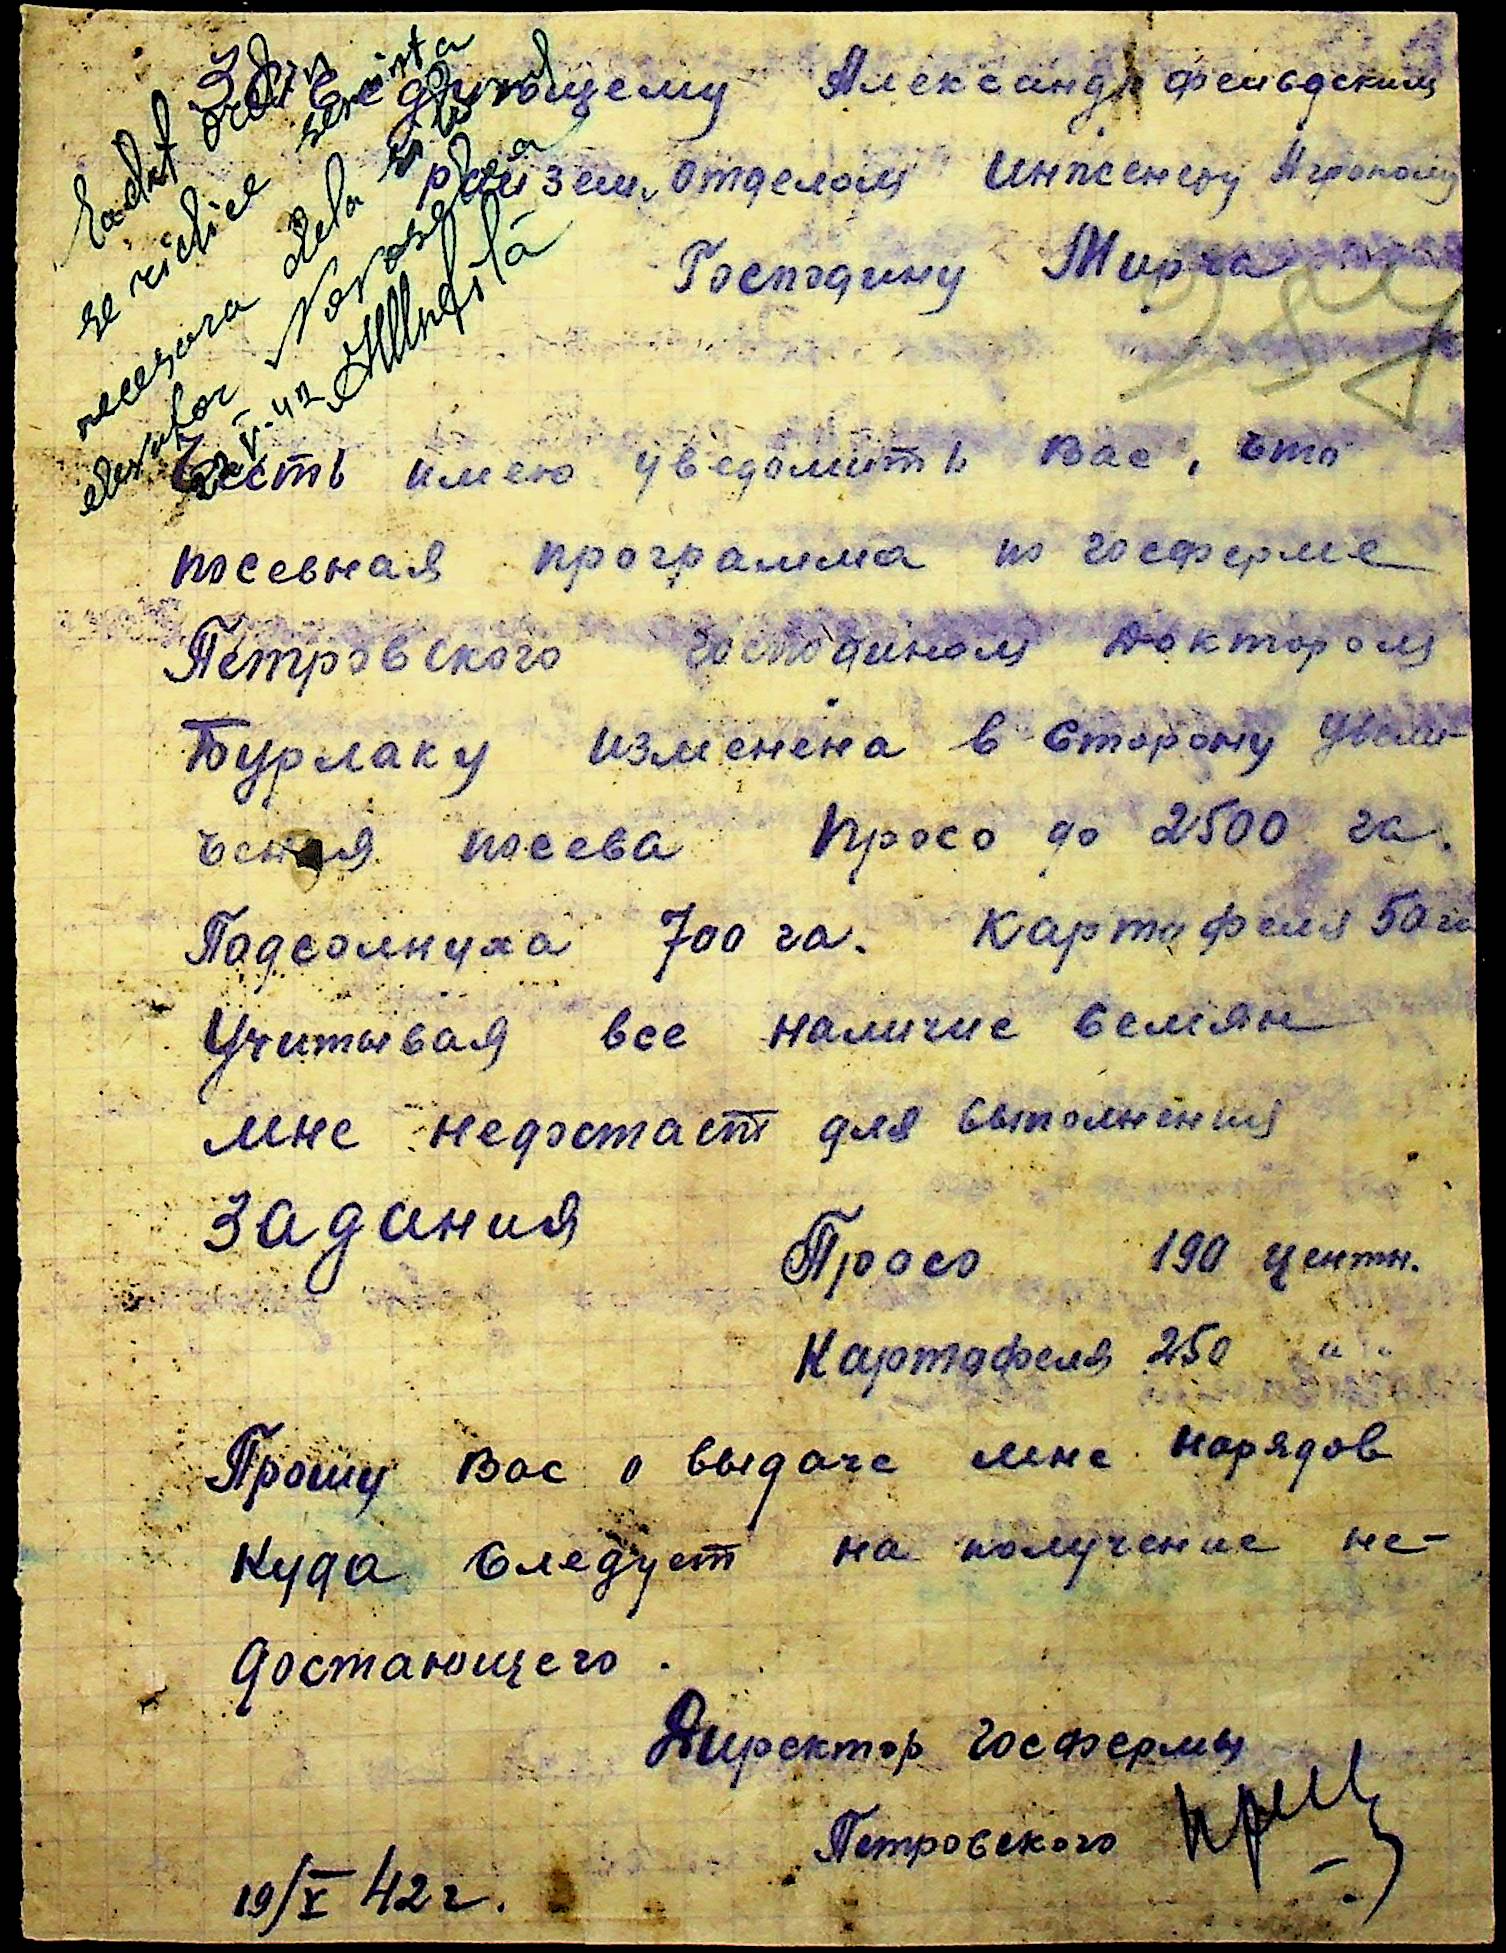 Заведующему Александрфельдским
райзем. отделом Инженеру Агроному
Господину Мирча
se ridice
necesara dela
V-42
Честь имею уведомить Вас, что
посевная программа по госферме
Петровского господином Доктором
Бурлаку изменена в сторону увели-
чения посева Просо до 2500 га.
Подсолнуха 700 га. Картафеля 50 га
Учитывая все наличие семян
мне недостает для выполнения
задания
Просо 190 центн.
Картафеля 250 " "
Прошу Вас о выдаче мне нарядов
куда следует на получение не-
достающего.
Директор госфермы
Петровского
19/V 42 г.